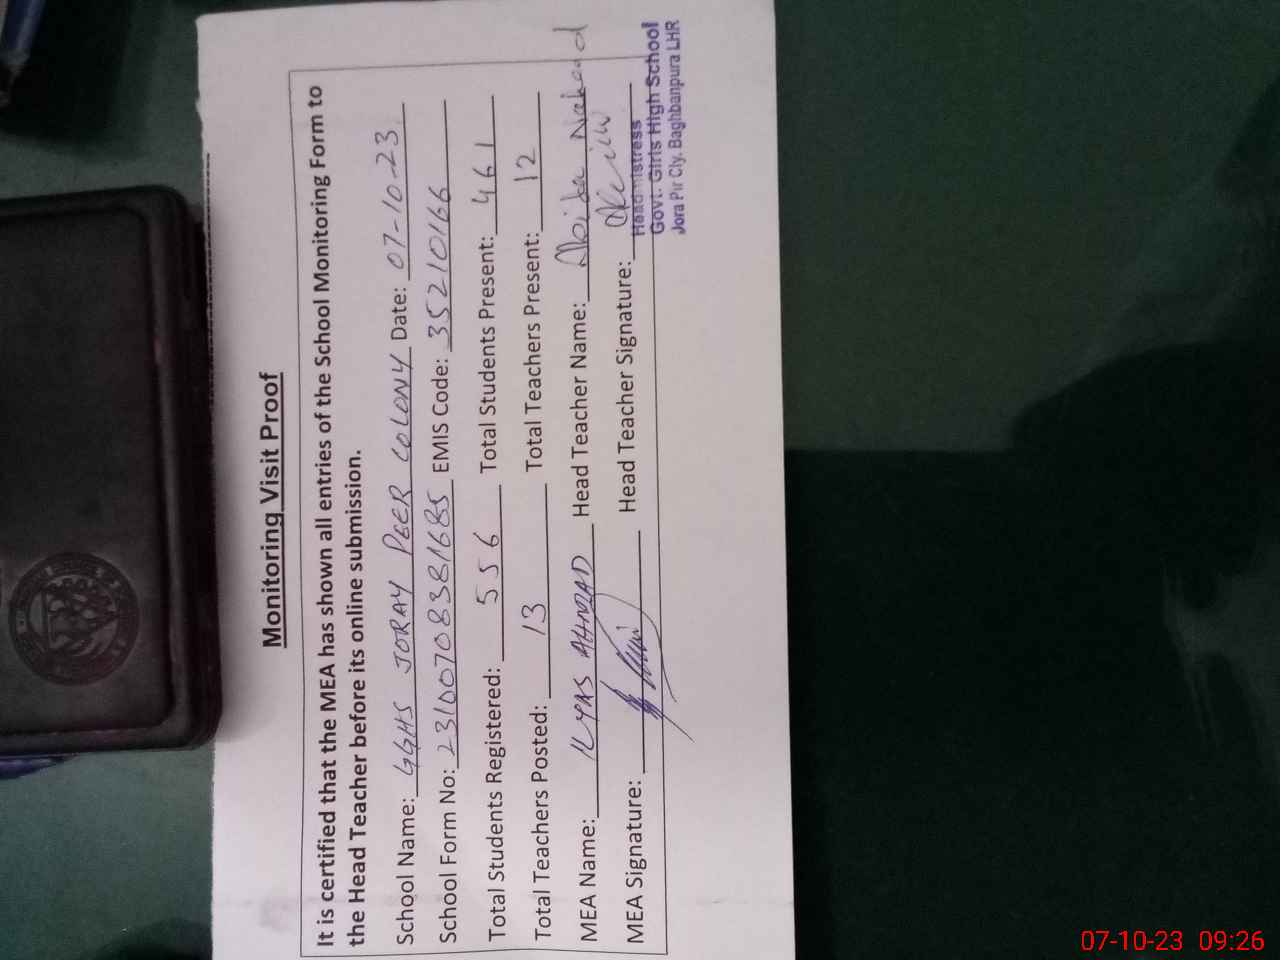 Monitoring Visit Proof
It is certified that the MEA has shown all entries of the School Monitoring Form to
the Head Teacher before its online submission.
School Name: GGHS JORAY PEER COLONY Date: 07-10-23
School Form No: 23100708381685 EMIS Code: 35210166
Total Students Registered: 556 Total Students Present: 461
Total Teachers Posted: 13 Total Teachers Present: 12
MEA Name: ILYAS AHMAD Head Teacher Name: Abida
MEA Signature: Head Teacher Signature:
Headmistress
Govt. Girls High School
Jora Pir Cly. Baghbanpura LHR
07-10-23 09:26